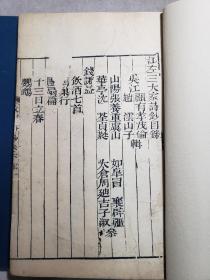 江左三大家詩鈔目錄
吳江 顧有孝茂倫輯
趙 澐山子
山陽張養重虞山 如皐冒 襄辟疆叅
華亭沈 荃貞蕤 太倉周廸吉子俶
錢謙益
飲酒七首
十三日立春